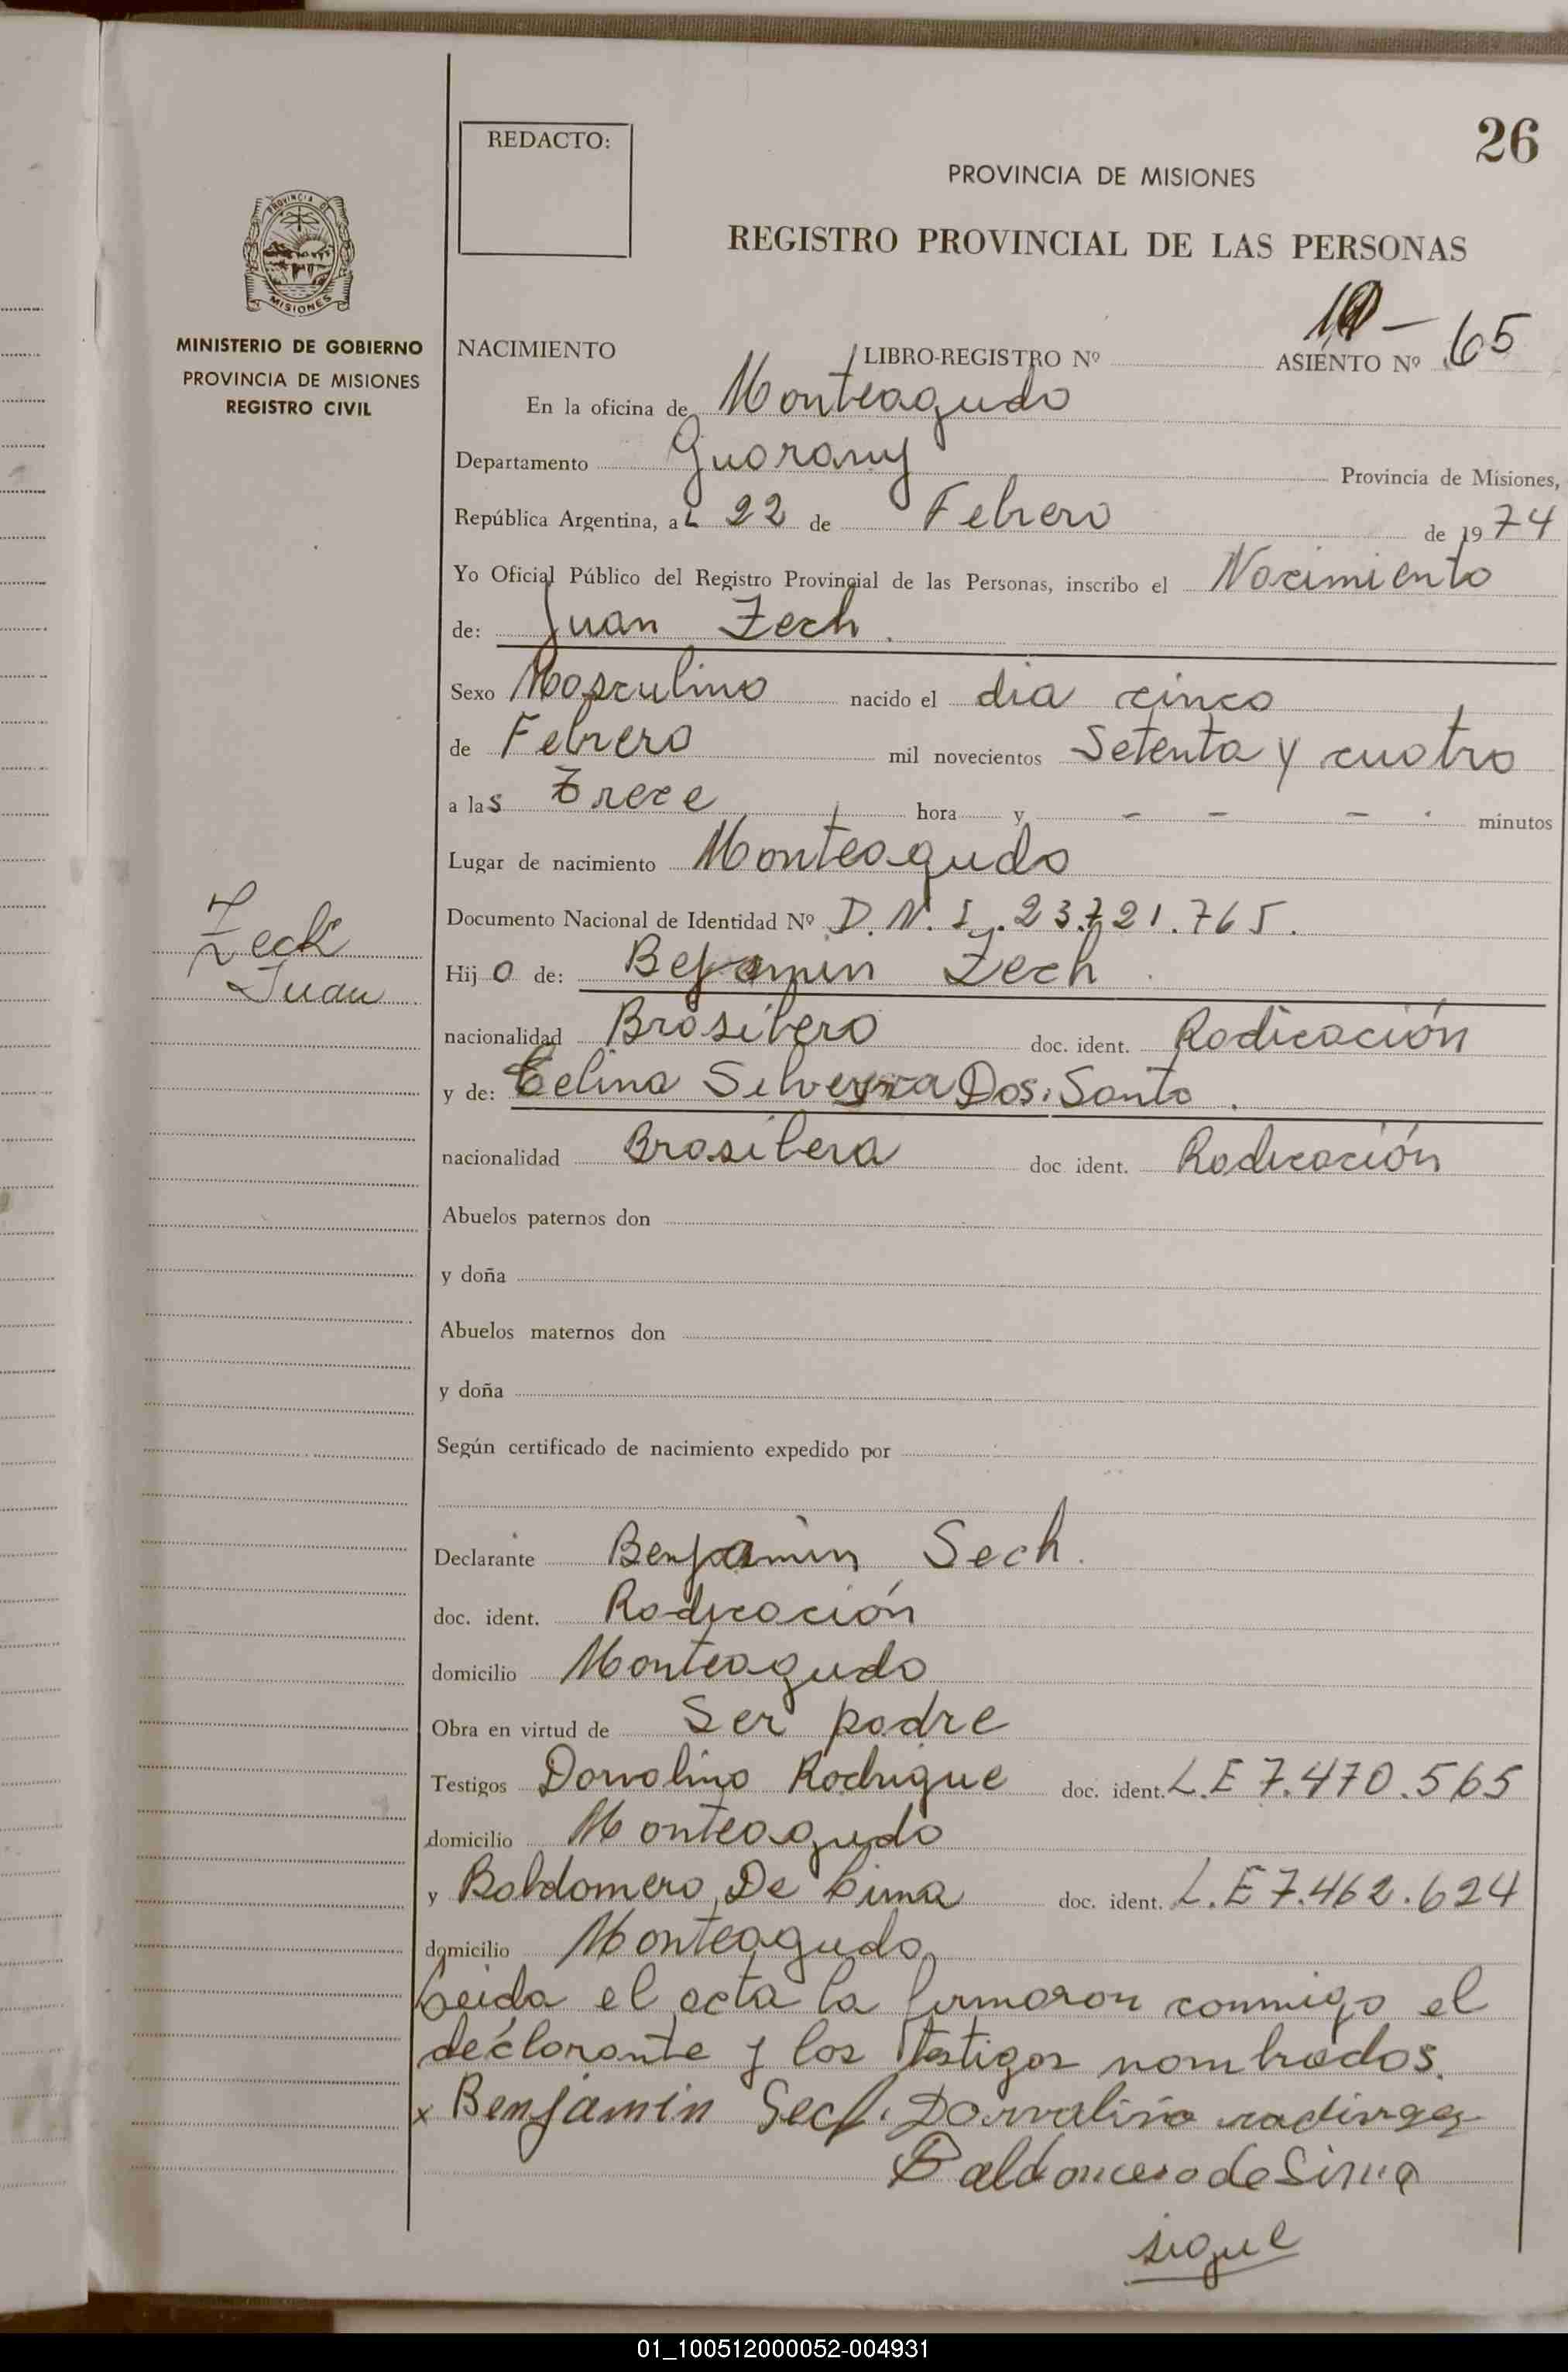 26
REDACTO:
PROVINCIA DE MISIONES
REGISTRO PROVINCIAL DE LAS PERSONAS
PROVINCIA DE
MISIONES
MINISTERIO DE GOBIERNO
PROVINCIA DE MISIONES
REGISTRO CIVIL
NACIMIENTO LIBRO-REGISTRO Nº ASIENTO Nº 65
En la oficina de Monteagudo
Departamento Guarany Provincia de Misiones,
República Argentina, a L 22 de Febrero de 1974
Yo Oficial Público del Registro Provincial de las Personas, inscribo el Nacimiento
de: Juan Zech.
Sexo Masculino nacido el dia cinco
de Febrero mil novecientos Setenta y cuatro
a las trece hora y - - - minutos
Lugar de nacimiento Monteagudo
Documento Nacional de Identidad Nº D.N.I. 23.721.765.
Zeck
Juan
Hijo de: Bejamin Zech.
nacionalidad Brasilero doc. ident. Radicación
y de: Celina Silveyra Dos Santo.
nacionalidad Brasilera doc ident. Radicación
Abuelos paternos don
y doña
Abuelos maternos don
y doña
Según certificado de nacimiento expedido por
Declarante Benjamin Sech.
doc. ident. Radicación
domicilio Monteagudo
Obra en virtud de Ser padre
Testigos Dorvalino Rodrigue doc. ident. L.E 7.470.565
domicilio Monteagudo
y Baldomero De Lima doc. ident. L.E 7.462.624
domicilio Monteagudo
Leida el acta la firmaron conmigo el
declarante y los testigos nombrados.
x Benjamin Sech. Dorvalino
Baldomero de Lima
sigue
01_100512000052-004931